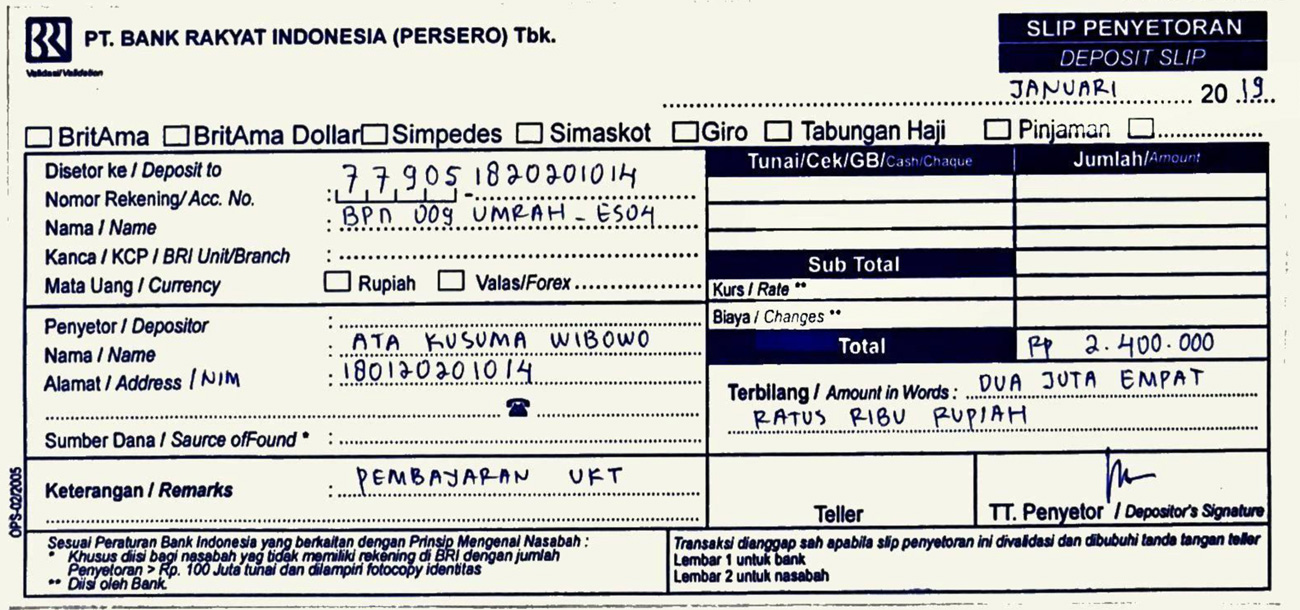 BRI PT. BANK RAKYAT INDONESIA (PERSERO) Tbk.
Validasi/Validation
SLIP PENYETORAN
DEPOSIT SLIP
JANUARI 20 19
BritAma BritAma Dollar Simpedes Simaskot Giro Tabungan Haji Pinjaman
Disetor ke / Deposit to
Nomor Rekening/ Acc. No. : 77905 1820201014
Nama / Name : BPN 009 UMRAH - ES04
Kanca / KCP / BRI Unit/Branch :
Mata Uang / Currency Rupiah Valas/Forex
Penyetor / Depositor :
Nama / Name : ATA KUSUMA WIBOWO
Alamat / Address / NIM : 180120201014
Sumber Dana / Saurce ofFound * :
Keterangan / Remarks : PEMBAYARAN UKT
Tunai/Cek/GB/Cash/Chaque Jumlah/Amount
Sub Total
Kurs / Rate **
Biaya / Changes **
Total Rp 2.400.000
Terbilang / Amount in Words : DUA JUTA EMPAT
RATUS RIBU RUPIAH
Teller TT. Penyetor / Depositor's Signature
OPS-02/2005
Sesuai Peraturan Bank Indonesia yang berkaitan dengan Prinsip Mengenal Nasabah :
* Khusus diisi bagi nasabah yag tidak memiliki rekening di BRI dengan jumlah
Penyetoran > Rp. 100 Juta tunai dan dilampiri fotocopy identitas
** Diisi oleh Bank.
Transaksi dianggap sah apabila slip penyetoran ini divalidasi dan dibubuhi tanda tangan teller
Lembar 1 untuk bank
Lembar 2 untuk nasabah